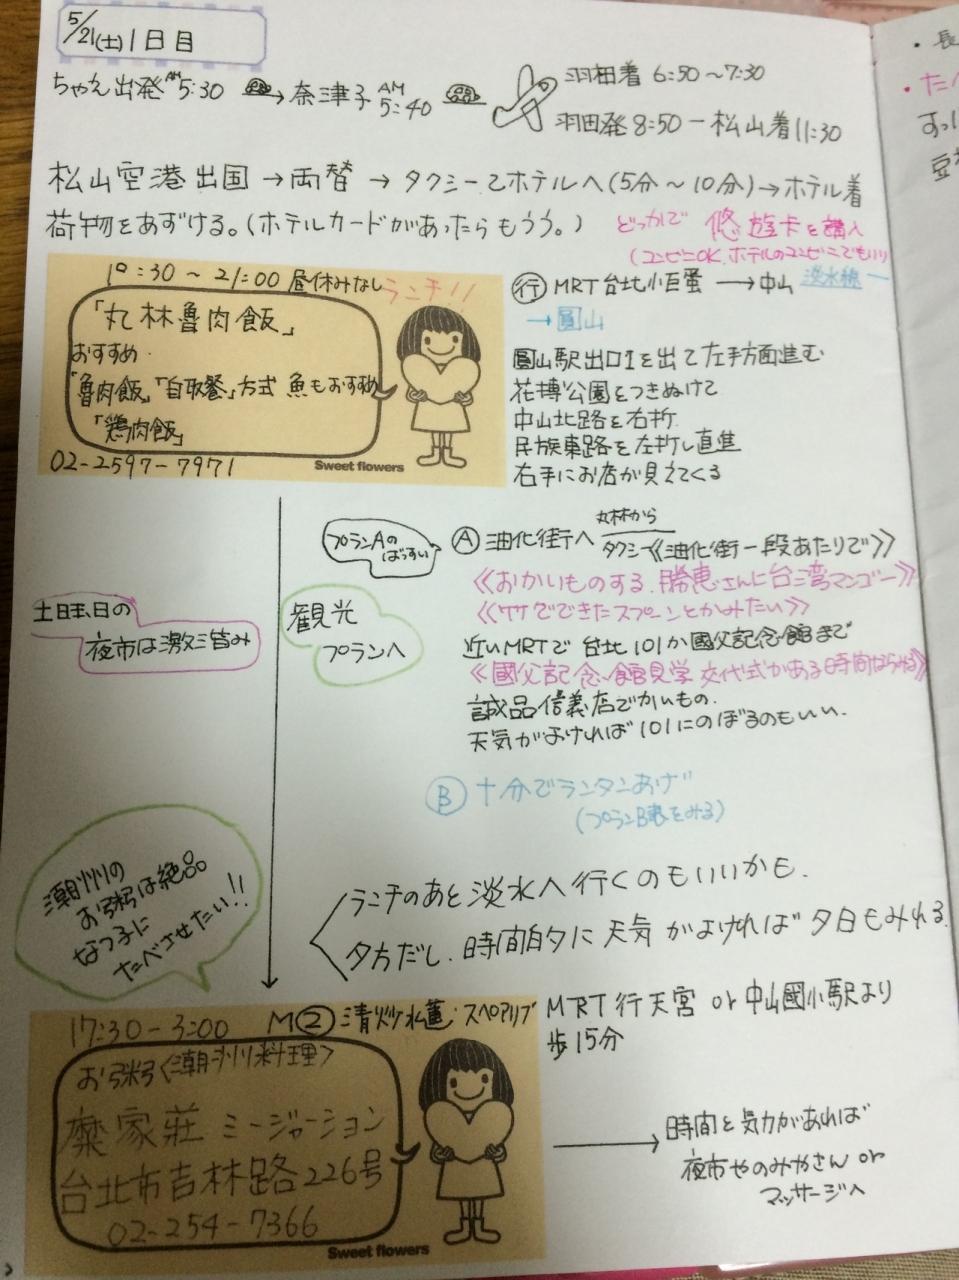 5/21(土)1日目
ちゃん出発AM5:30 → 奈津子AM5:40
羽田着 6:50〜7:30
羽田発 8:50 ー 松山着11:30
松山空港出国 → 両替 → タクシーてホテルへ(5分〜10分)→ホテル着
荷物をあずける。(ホテルカードがあったらもらう。)
どっかで 悠遊卡を購入
(コンビニOK.ホテルのコンビニでもいい
10:30 〜 21:00 昼休みなし
ランチ!!
「丸林魯肉飯」
おすすめ
「魯肉飯」「自取餐」方式 魚もおすすめ
「鶏肉飯」
02-2597-7971
Sweet flowers
行 MRT台北小巨蛋 → 中山 淡水線ー
→ 圓山
圓山駅出口1を出て左手方面進む
花博公園をつきぬけて
中山北路を右折
民族東路を左折し直進
右手にお店が見えてくる
プランAの
ばっすい
A 油化街へ 丸林から
タクシーで《油化街一段あたりで》
《おかいものする.勝恵さんに台湾マンゴー》
《ウサでできたスプーンとかみたい》
近いMRTで 台北101か國父記念館まで
《國父記念館見学 交代式がある時間ならみる》
誠品信義店でかいもの.
天気がよければ101にのぼるのもいい.
土曜日の
夜市は激混み
観光
プランへ
B 十分でランタンあげ
(プランB表をみる)
潮州の
お粥は絶品
なつ子に
たべさせたい!!
ランチのあと 淡水へ行くのもいいかも.
夕方だし.時間的に天気がよければ夕日もみれる.
17:30-3:00 M② 清炒水蓮・スペアリブ
お粥<潮州料理>
糜家莊 ミージャーション
台北市吉林路226号
02-254-7366
Sweet flowers
MRT 行天宮 or 中山國小駅より
歩15分
→ 時間と気力があれば
夜市やのみやさん or
マッサージへ
・長
・た
すっ
豆